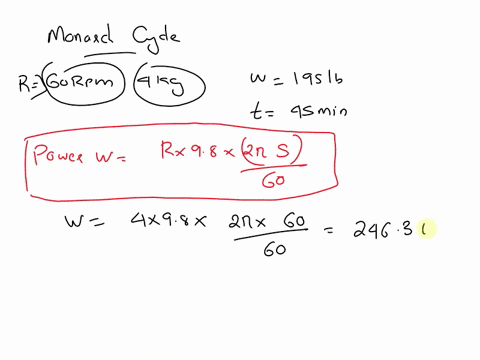 Monard Cycle
R= 60 Rpm 4 Kg
w = 195 lb
t = 45 min
Power W = R x 9.8 x (2π S) / 60
W = 4 x 9.8 x 2π x 60 / 60 = 246.3 (